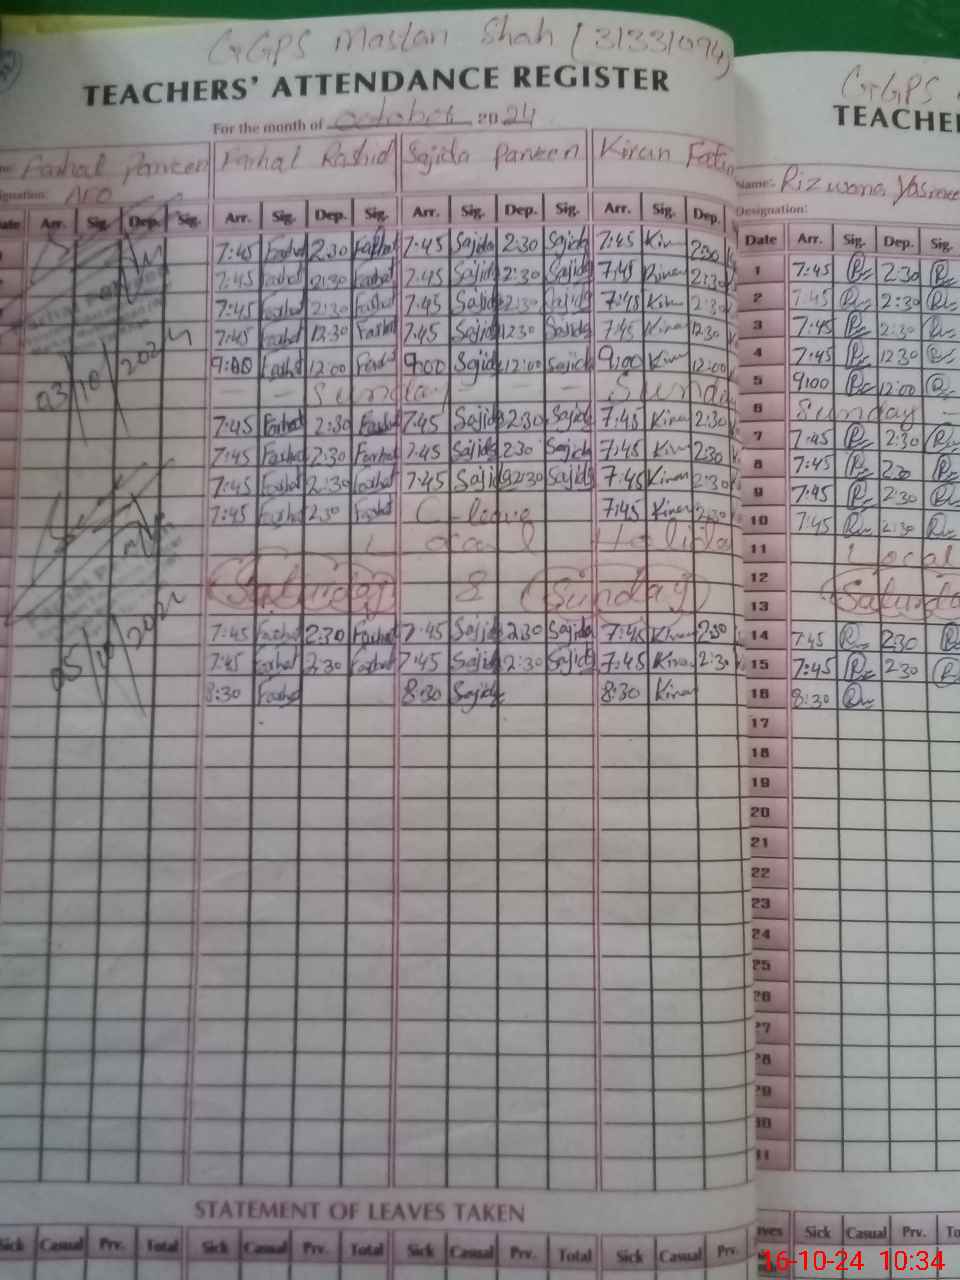 GGPS Mastan Shah (31331094)
TEACHERS' ATTENDANCE REGISTER
For the month of October 2024
Farhat Parveen Farhat Rashid Sajida Parveen Kiran
AEO
Arr. Sig. Dep. Sig. Arr. Sig. Dep. Sig. Arr. Sig. Dep. Sig. Arr. Sig. Dep.
7:45 Farhat 2:30 Farhat 7:45 Sajida 2:30 Sajida 7:45 Kiran 2:30
7:45 Farhat 2:30 Farhat 7:45 Sajida 2:30 Sajida 7:45 Kiran 2:30
7:45 Farhat 2:30 Farhat 7:45 Sajida 2:30 Sajida 7:45 Kiran 2:30
7:45 Farhat 12:30 Farhat 7:45 Sajida 12:30 Sajida 7:45 Kiran 12:30
9:00 Farhat 12:00 Farhat 9:00 Sajida 12:00 Sajida 9:00 Kiran 12:00
- Sunday - - - Sunday
7:45 Farhat 2:30 Farhat 7:45 Sajida 2:30 Sajida 7:45 Kiran 2:30
7:45 Farhat 2:30 Farhat 7:45 Sajida 2:30 Sajida 7:45 Kiran 2:30
7:45 Farhat 2:30 Farhat 7:45 Sajida 2:30 Sajida 7:45 Kiran 2:30
7:45 Farhat 2:30 Farhat C-leave 7:45 Kiran 2:30
Local Holiday
Saturday & Sunday
7:45 Farhat 2:30 Farhat 7:45 Sajida 2:30 Sajida 7:45 Kiran 2:30
7:45 Farhat 2:30 Farhat 7:45 Sajida 2:30 Sajida 7:45 Kiran 2:30
8:30 Farhat 8:30 Sajida 8:30 Kiran
03/10/2024
05/10/2024
STATEMENT OF LEAVES TAKEN
Sick Casual Prv. Total Sick Casual Prv. Total Sick Casual Prv. Total Sick Casual Prv.
GGPS
TEACHE
Name:- Rizwana Yasmeen
Designation:
Date Arr. Sig. Dep. Sig.
1 7:45 2:30
2 7:45 2:30
3 7:45 2:30
4 7:45 12:30
5 9:00 12:00
6 Sunday -
7 7:45 2:30
8 7:45 2:30
9 7:45 2:30
10 7:45 2:30
11 Local
12
13 Saturda
14 7:45 2:30
15 7:45 2:30
16 8:30
17
18
19
20
21
22
23
24
25
26
27
28
29
30
31
Sick Casual Prv.
16-10-24 10:34